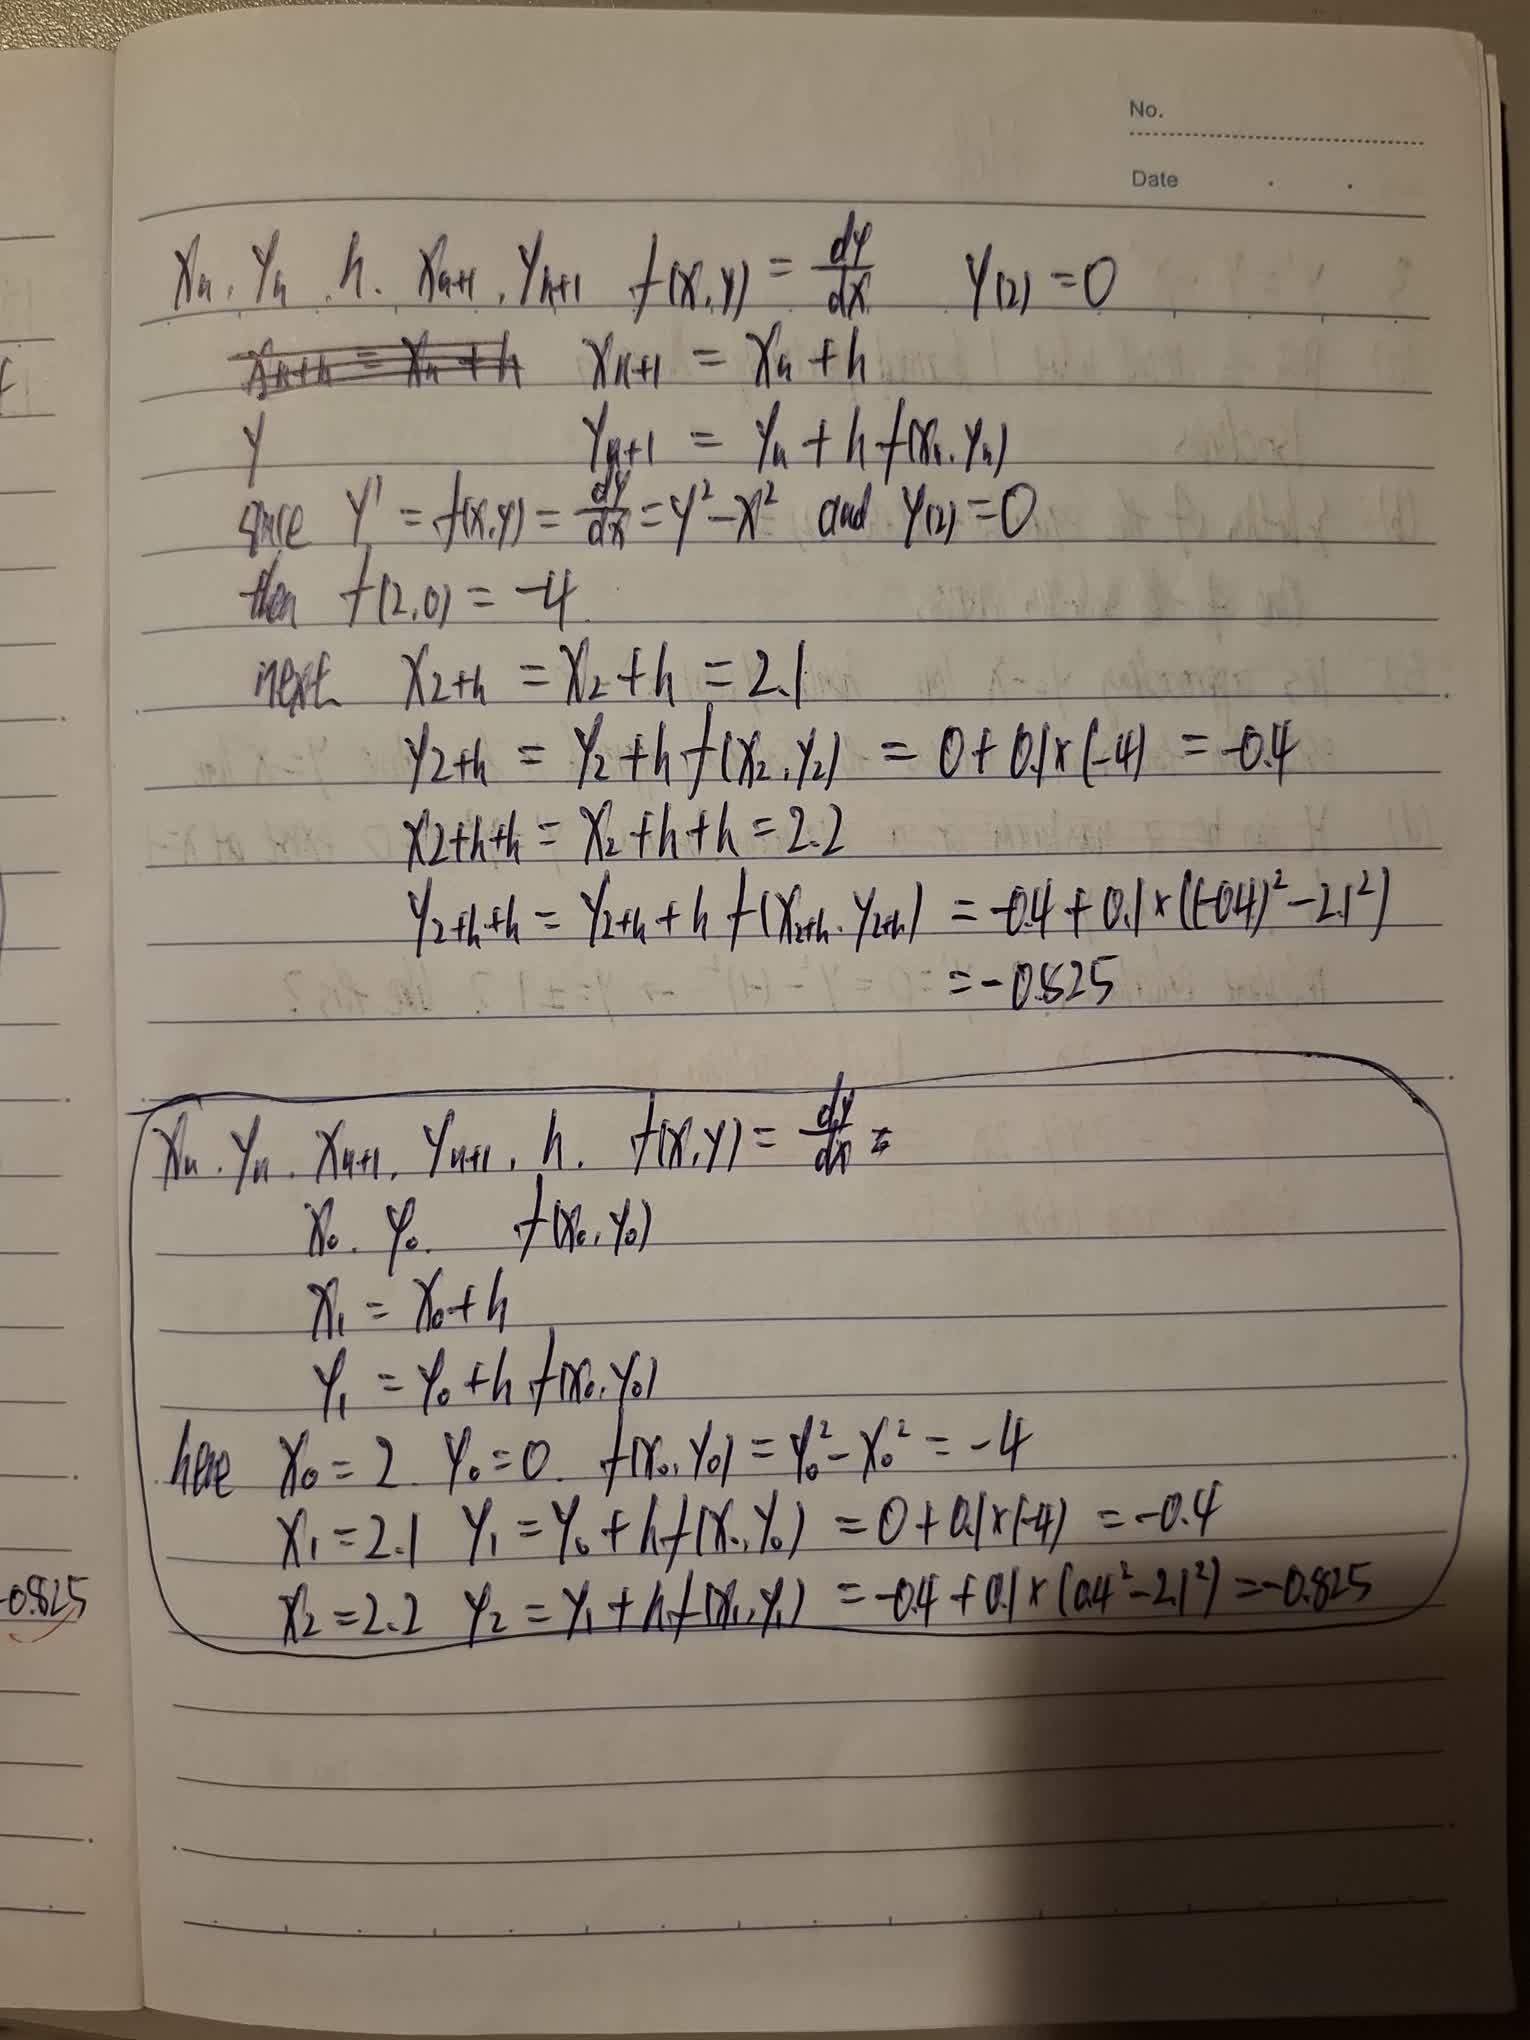 No.
Date
xₙ, yₙ, h, xₙ₊₁, yₙ₊₁ f(x, y) = dy/dx y(2) = 0
xₙ₊ₕ = xₙ + h xₙ₊₁ = xₙ + h
y yₙ₊₁ = yₙ + h f(xₙ, yₙ)
since y' = f(x, y) = dy/dx = y² − x² and y(2) = 0
then f(2, 0) = −4
next x₂₊ₕ = x₂ + h = 2.1
y₂₊ₕ = y₂ + h f(x₂, y₂) = 0 + 0.1 × (−4) = −0.4
x₂₊ₕ₊ₕ = x₂ + h + h = 2.2
y₂₊ₕ₊ₕ = y₂₊ₕ + h f(x₂₊ₕ, y₂₊ₕ) = −0.4 + 0.1 × ((−0.4)² − 2.1²)
= −0.825
xₙ, yₙ, xₙ₊₁, yₙ₊₁, h, f(x, y) = dy/dx =
x₀, y₀, f(x₀, y₀)
x₁ = x₀ + h
y₁ = y₀ + h f(x₀, y₀)
here x₀ = 2, y₀ = 0, f(x₀, y₀) = y₀² − x₀² = −4
x₁ = 2.1 y₁ = y₀ + h f(x₀, y₀) = 0 + 0.1 × (−4) = −0.4
x₂ = 2.2 y₂ = y₁ + h f(x₁, y₁) = −0.4 + 0.1 × (0.4² − 2.1²) = −0.825
-0.825